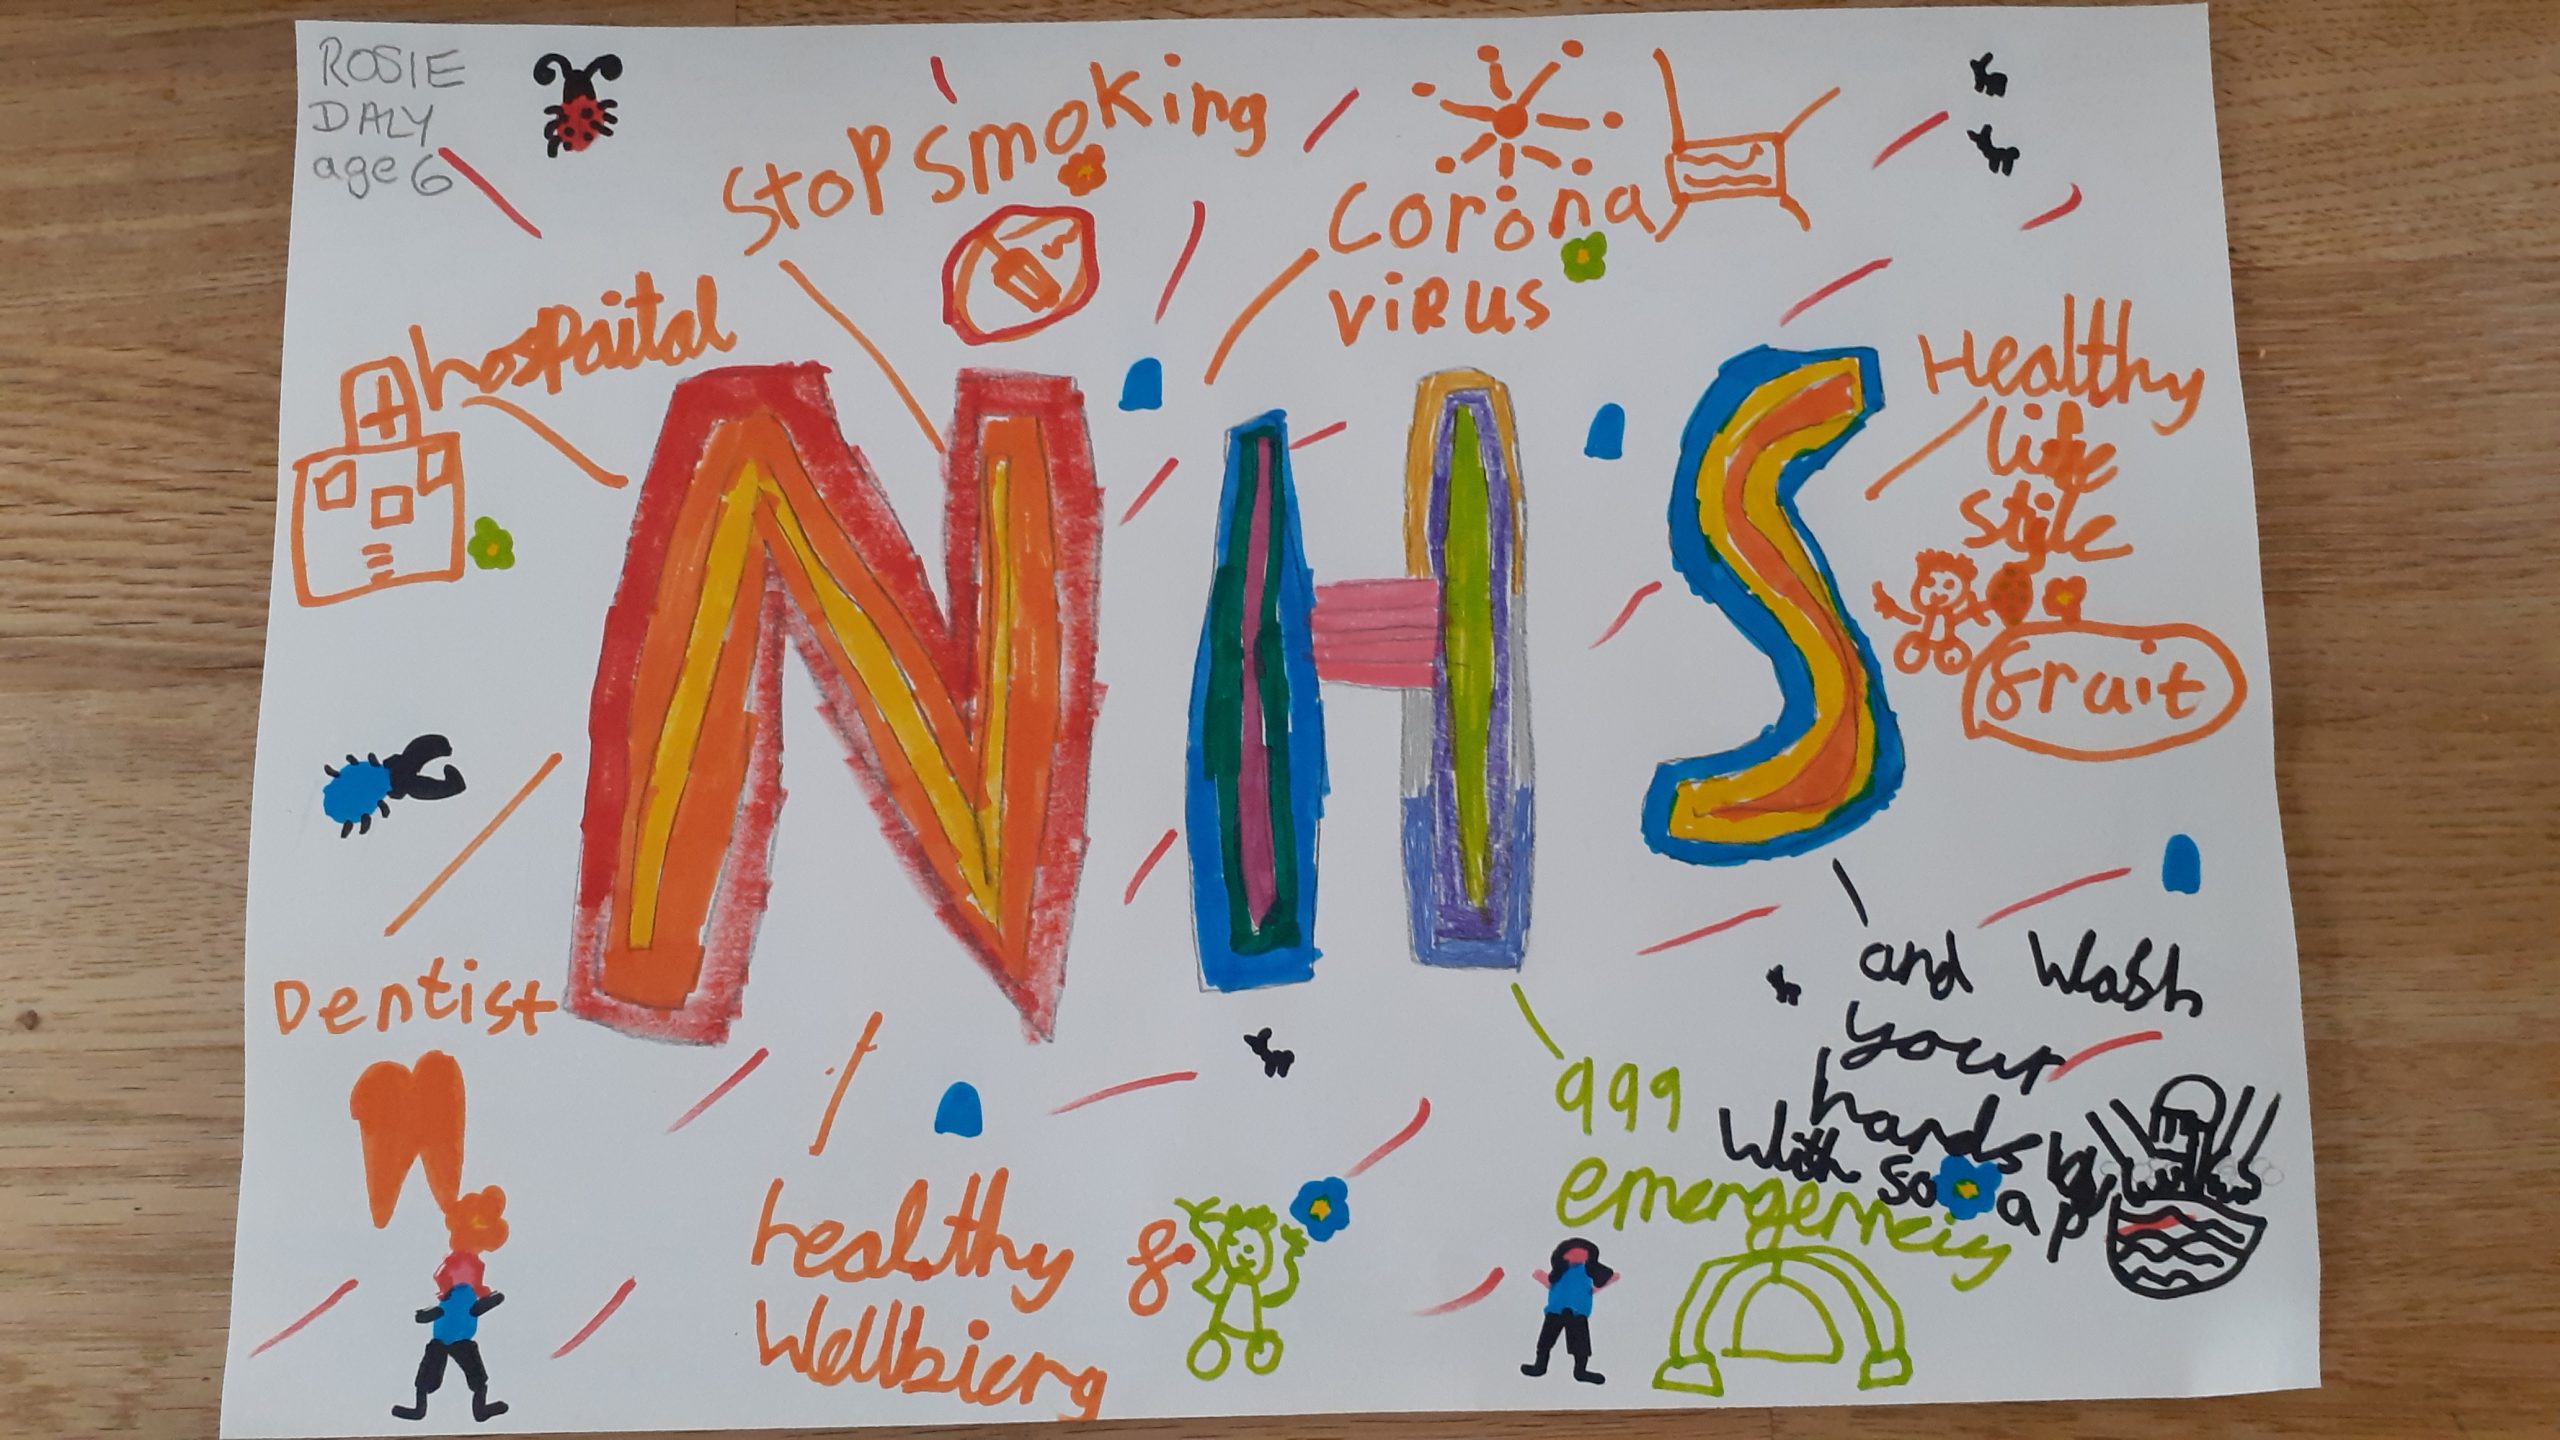 ROSIE
DALY
age 6
Stop smoking
Corona
viRus
hospaital
Healthy
life
style
fruit
NHS
Dentist
and Wash
your
hands
With soap
999
emergenciy
healthy
Wellbierg